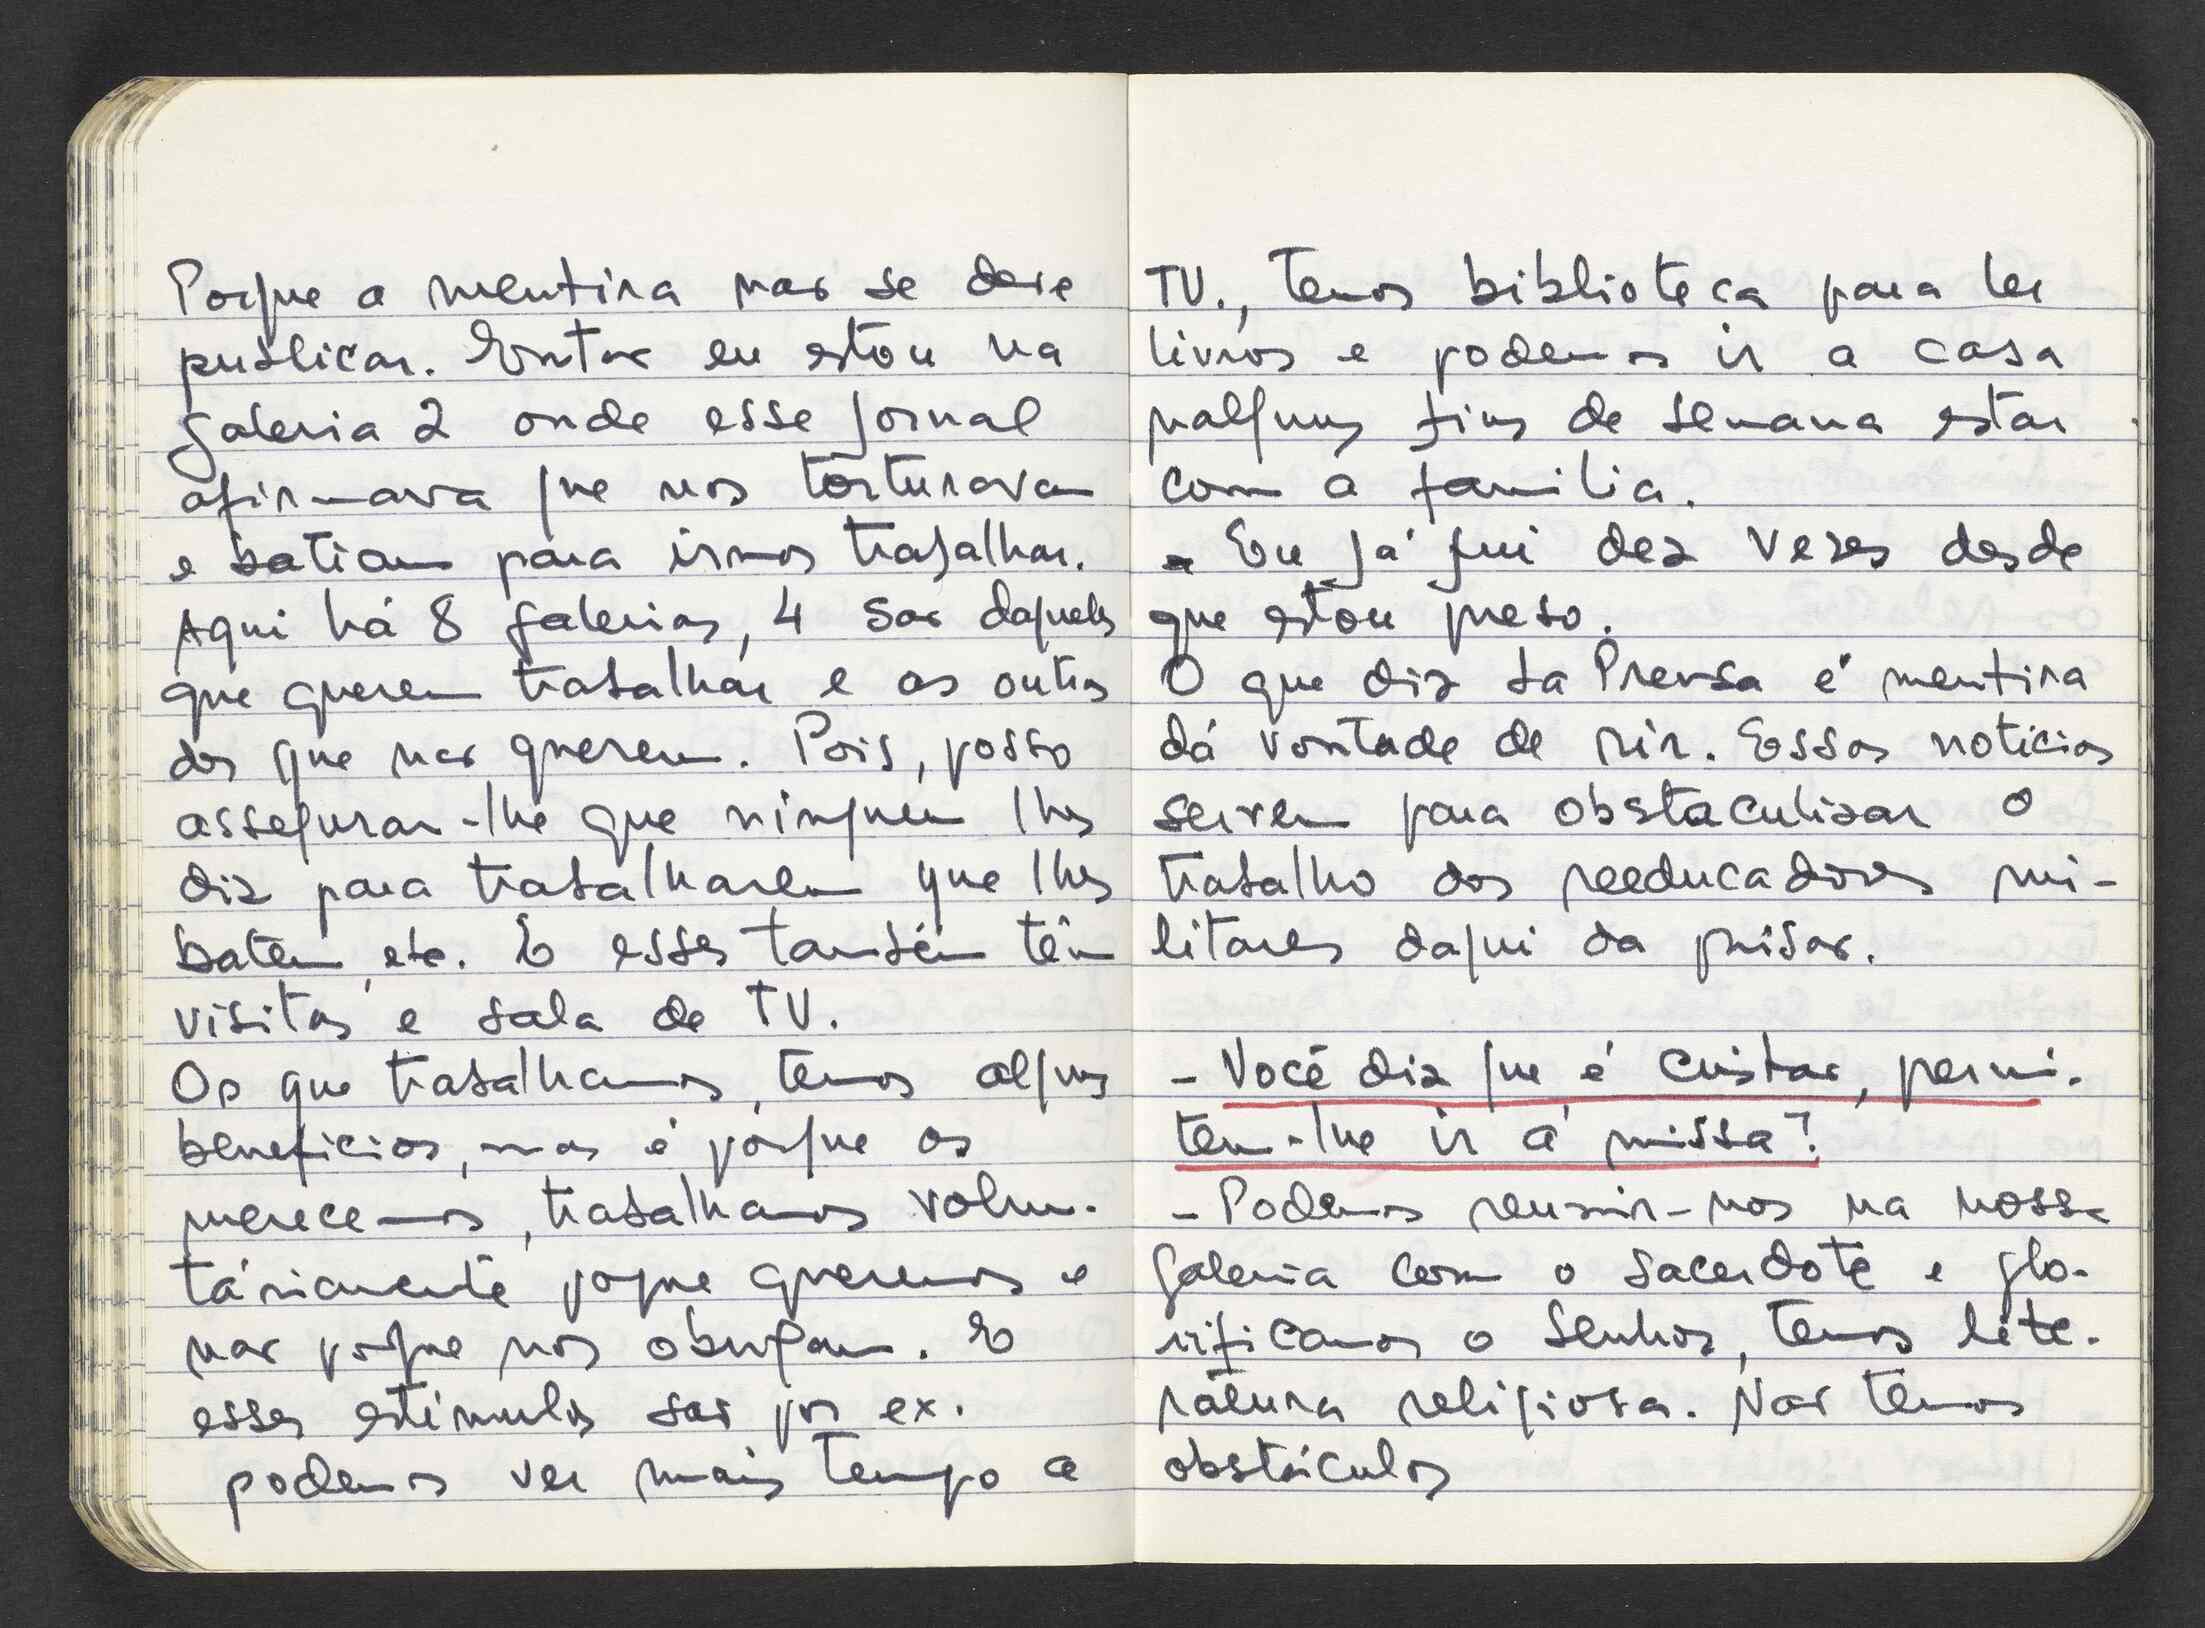 Porque a mentira não se deve
publicar. Então eu estou na
galeria 2 onde esse jornal
afirmava que nos torturavam
e batiam para irmos trabalhar.
Aqui há 8 galerias, 4 são daqueles
que querem trabalhar e as outras
dos que não querem. Pois, posso
assegurar-lhe que ninguém lhes
diz para trabalharem que lhes
batem, etc. E esses também têm
visitas e sala de TV.
Os que trabalhamos, temos alguns
beneficios, mas é porque os
merecemos, trabalhamos volun-
táriamente porque queremos e
não porque nos obrigam. E
esses estímulos são por ex.
podemos ver mais tempo a
TV., temos biblioteca para ler
livros e podemos ir a casa
nalguns fins de semana estar
com a familia.
- Eu já fui dez vezes desde
que estou preso.
O que diz La Prensa é mentira
dá vontade de rir. Essas noticias
servem para obstaculizar o
trabalho dos reeducadores mi-
litares daqui da prisão.
- Você diz que é cristão, permi-
tem-lhe ir á missa?
- Podemos reunir-nos na nossa
galeria com o sacerdote e glo-
rificamos o Senhor, temos lite-
ratura religiosa. Não temos
obstáculos